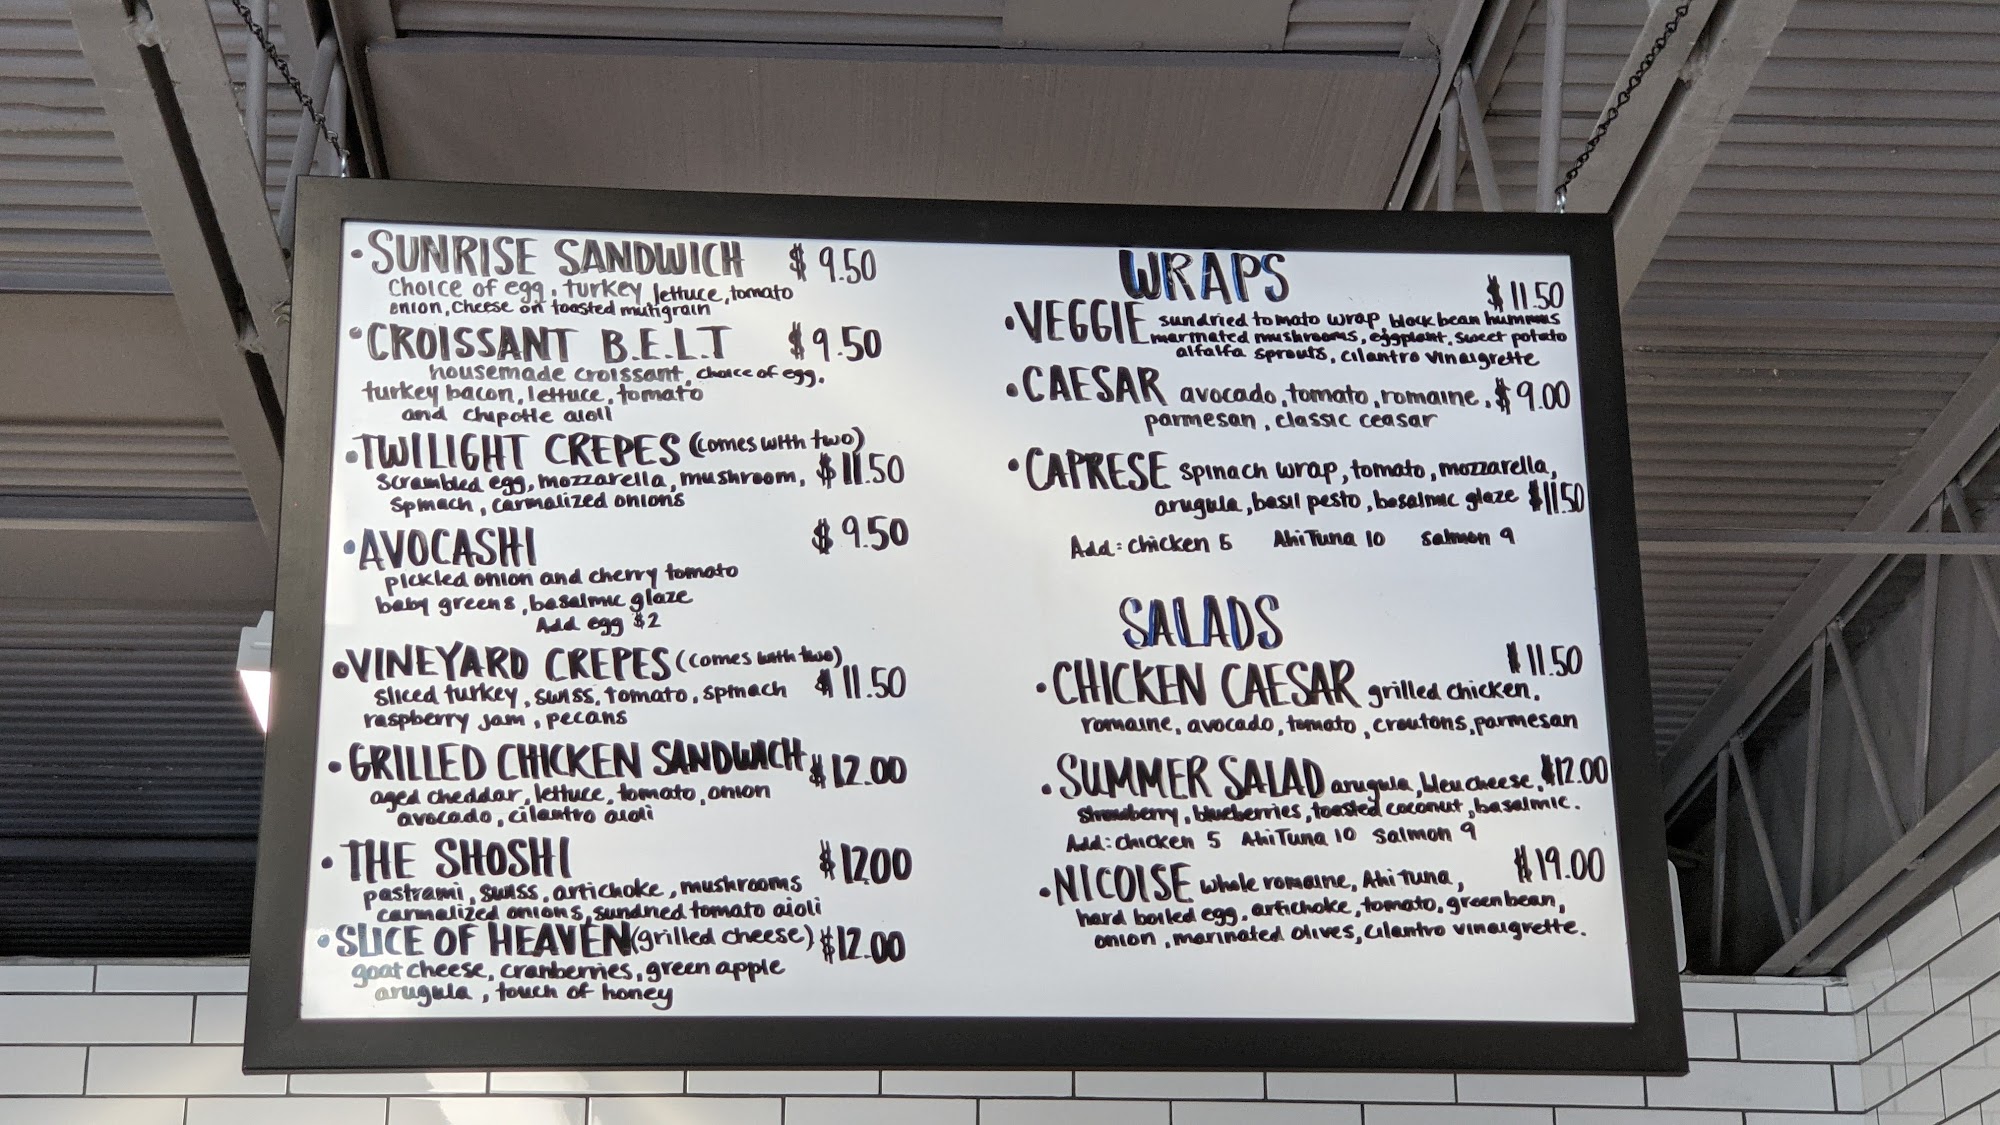 • SUNRISE SANDWICH $ 9.50
Choice of egg, turkey, lettuce, tomato
onion, Cheese on toasted mutigrain
• CROISSANT B.E.L.T $ 9.50
housemade croissant, choice of egg,
turkey bacon, lettuce, tomato
and chipotle aioli
• TWILIGHT CREPES (comes with two)
scrambled egg, mozzarella, mushroom, $ 11.50
spinach, carmalized onions
• AVOCASHI $ 9.50
pickled onion and cherry tomato
baby greens, basalmic glaze
Add egg $2
• VINEYARD CREPES (comes with two)
sliced turkey, swiss, tomato, spinach $ 11.50
raspberry jam, pecans
• GRILLED CHICKEN SANDWICH $ 12.00
aged cheddar, lettuce, tomato, onion
avocado, cilantro aioli
• THE SHOSHI $ 12.00
pastrami, swiss, artichoke, mushrooms
carmalized onions, sundried tomato aioli
• SLICE OF HEAVEN (grilled cheese) $12.00
goat cheese, cranberries, green apple
arugula, touch of honey
WRAPS
$ 11.50
• VEGGIE sundried tomato wrap, black bean hummus
marinated mushrooms, eggplant, sweet potato
alfalfa sprouts, cilantro vinaigrette
• CAESAR avocado, tomato, romaine, $ 9.00
parmesan, classic ceasar
• CAPRESE spinach wrap, tomato, mozzarella,
arugula, basil pesto, basalmic glaze $11.50
Add: chicken 5 Ahi Tuna 10 salmon 9
SALADS
$ 11.50
• CHICKEN CAESAR grilled chicken,
romaine, avocado, tomato, croutons, parmesan
• SUMMER SALAD arugula, bleu cheese, $12.00
strawberry, blueberries, toasted coconut, basalmic.
Add: chicken 5 Ahi Tuna 10 Salmon 9
• NICOISE whole romaine, Ahi tuna, $ 19.00
hard boiled egg, artichoke, tomato, green bean,
onion, marinated olives, cilantro vinaigrette.